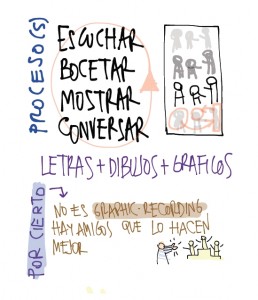 PROCESO(S)
ESCUCHAR
BOCETAR
MOSTRAR
CONVERSAR
LETRAS + DIBUJOS + GRAFICOS
POR CIERTO
NO ES GRAPHIC-RECORDING
HAY AMIGOS QUE LO HACEN
MEJOR